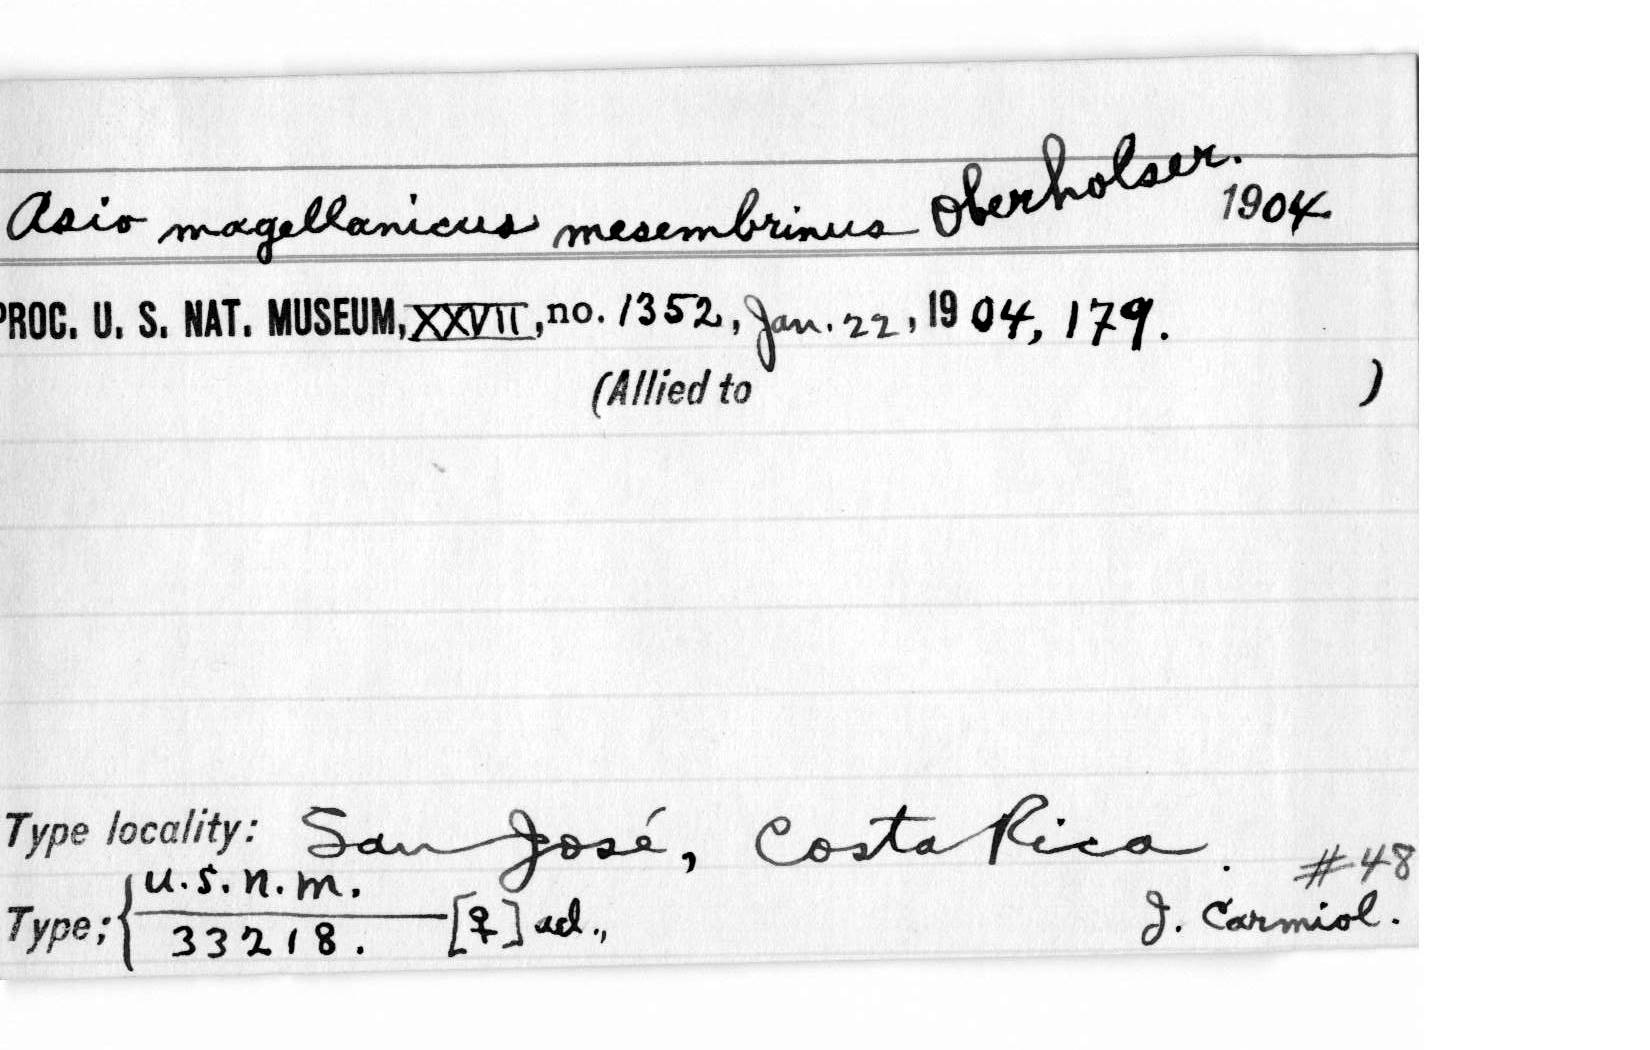 Asio magellanicus mesembrinus Oberholser. 1904.
PROC. U. S. NAT. MUSEUM, XXVII, no. 1352, Jan. 22, 1904, 179.
(Allied to )
Type locality: San José, Costa Rica.
#48
Type: { U.S.N.M. 33218. [♀] ad., J. Carmiol.